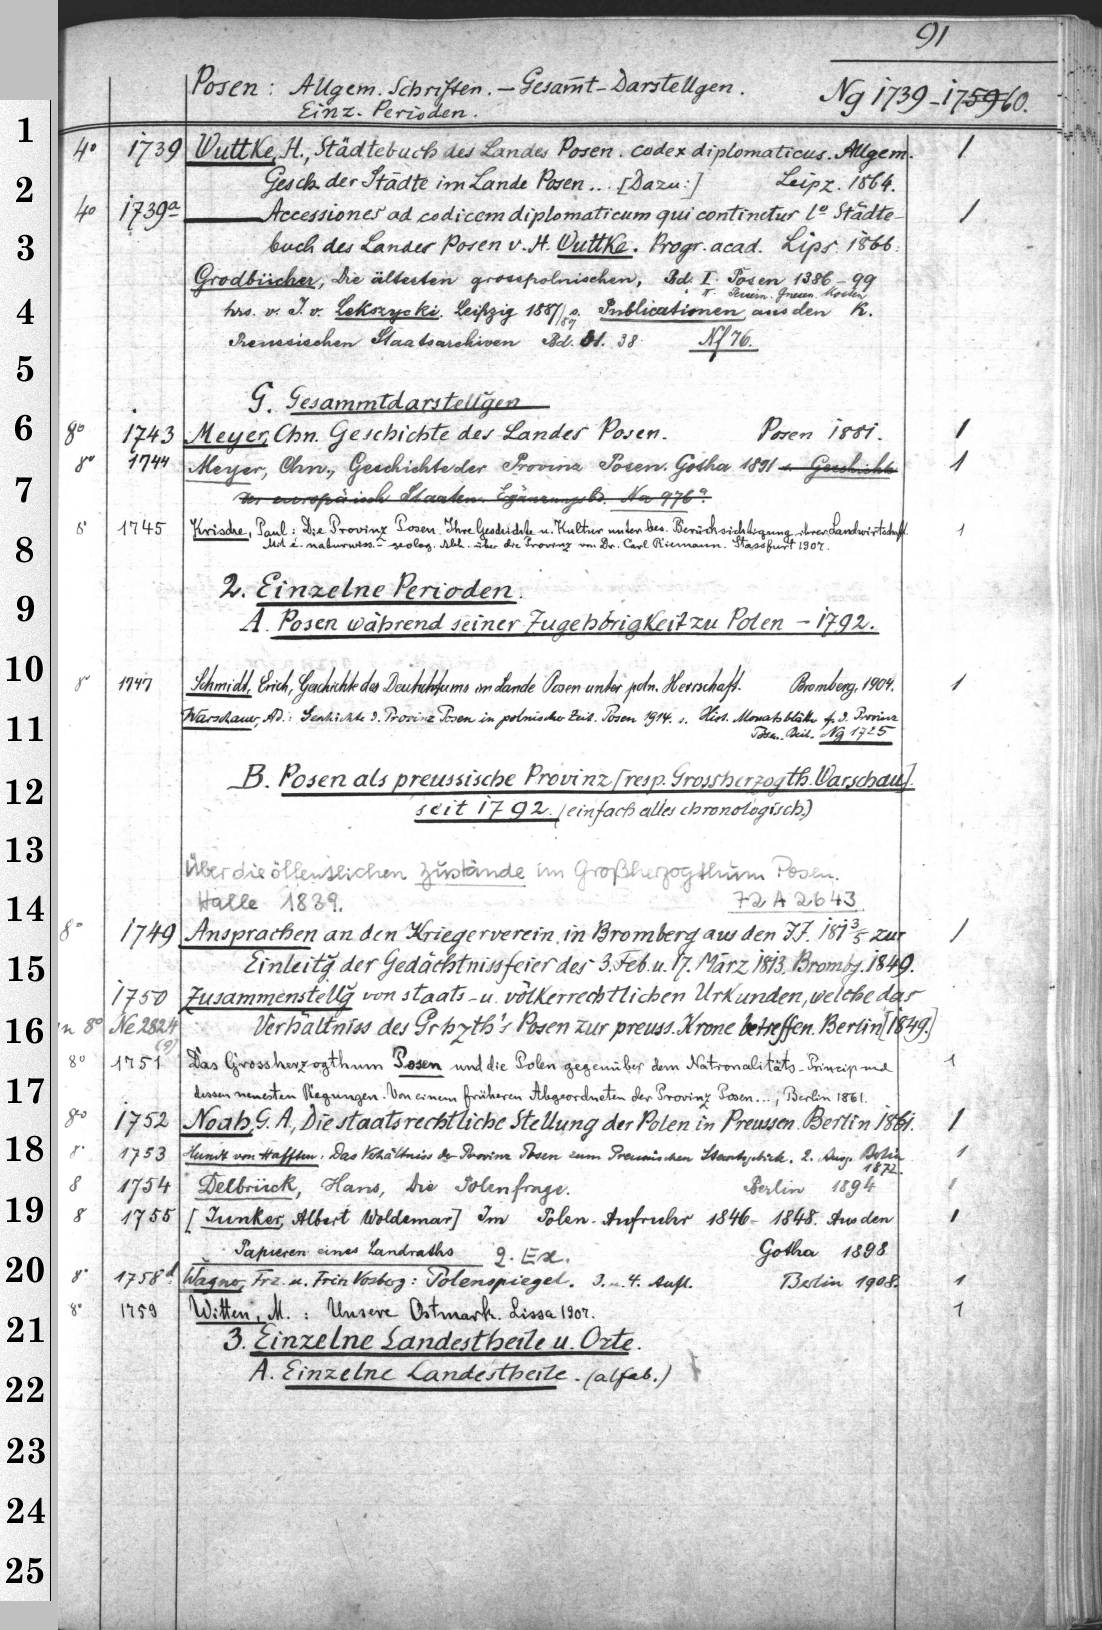 91
Posen: Allgem. Schriften. — Gesamt-Darstellgen.
Einz. Perioden.
Ng 1739-175960.
1
4° 1739 Wuttke, H., Städtebuch des Landes Posen. codex diplomaticus. Allgem. 1
2
Gesch. der Städte im Lande Posen... [Dazu:] Leipz. 1864.
4° 1739a ——— Accessiones ad codicem diplomaticum qui continetur l° Städte- 1
3
buch des Landes Posen v. H. Wuttke. Progr. acad. Lips. 1866.
Grodbücher, Die ältesten grosspolnischen, Bd. I. Posen 1386-99
II Peisern. Gnesen. Kosten
4
hrs. v. J. v. Lekszycki. Leipzig 1887/89 s. Publicationen aus den K.
Preussischen Staatsarchiven Bd. 31. 38 Nf 76.
5
G. Gesammtdarstellgen
6
8° 1743 Meyer, Chn. Geschichte des Landes Posen. Posen 1881. 1
8° 1744 Meyer, Chn., Geschichte der Provinz Posen. Gotha 1891 s. Geschichte 1
7
der europäisch Staaten. Ergänzungsb. Na 976a.
8 1745 Krische, Paul: Die Provinz Posen. Ihre Geschichte u. Kultur unter bes. Berücksichtigung ihrer Landwirtschaft. 1
8
Mit e. naturwiss.- geolog. Abh. über die Provinz von Dr. Carl Riemann. Stassfurt 1907.
2. Einzelne Perioden.
9
A. Posen während seiner Zugehörigkeit zu Polen - 1792.
10
8° 1747 Schmidt, Erich, Geschichte des Deutschtums im Lande Posen unter poln. Herrschaft. Bromberg, 1904. 1
11
Warschauer, Ad.: Geschichte d. Provinz Posen in polnischer Zeit. Posen 1914. s. Hist. Monatsblätter f. d. Provinz
Posen. Beil. Ng 1725
12
B. Posen als preussische Provinz [resp. Grossherzogth. Warschau].
seit 1792. (einfach alles chronologisch.)
13
Über die öffentlichen Zustände im Großherzogthum Posen.
14
Halle 1839. 72 A 2643
8° 1749 Ansprachen an den Kriegerverein in Bromberg aus den JJ. 1813/5 zur 1
15
Einleitg der Gedächtnissfeier des 3. Feb. u. 17. März 1813. Brombg. 1849.
1750 Zusammenstellg von staats- u. völkerrechtlichen Urkunden, welche das
16
in 8° Ne 2824 Verhältniss des Grhzth's Posen zur preuss. Krone betreffen. Berlin [1849.]
(9)
8° 1751 Das Grossherzogthum Posen und die Polen gegenüber dem Nationalitäts-Princip und 1
17
dessen neuesten Regungen. Von einem früheren Abgeordneten der Provinz Posen..., Berlin 1861.
8° 1752 Noah, G. A., Die staatsrechtliche Stellung der Polen in Preussen. Berlin 1861. 1
18
8° 1753 Hundt von Hafften. Das Verhältniss der Provinz Posen zum Preussischen Staatsgebiete. 2. Ausg. Berlin 1
1872.
8 1754 Delbrück, Hans, Die Polenfrage. Berlin 1894 1
19
8 1755 [Junker, Albert Woldemar] Im Polen-Aufruhr 1846-1848. Aus den 1
Papieren eines Landraths 2. Ex. Gotha 1898
20
8° 1758d Wagner, Frz. u. Fritz Vosberg: Polenspiegel. 3. u. 4. Aufl. Berlin 1908. 1
8° 1759 Witten, M.: Unsere Ostmark. Lissa 1907. 1
21
3. Einzelne Landestheile u. Orte.
22
A. Einzelne Landestheile. (alfab.)
23
24
25